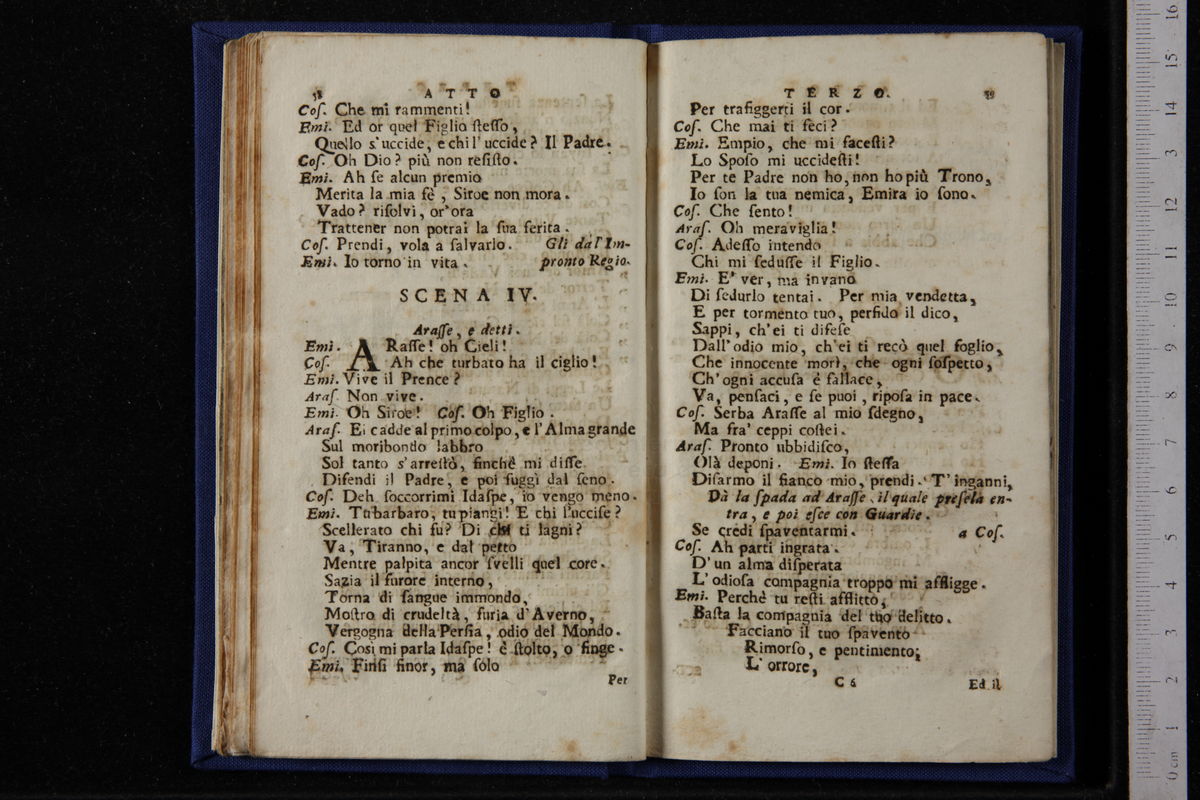 58 ATTO
Coſ. Che mi rammenti!
Emi. Ed or quel Figlio ſteſſo,
Quello s'uccide, e chi l'uccide? Il Padre.
Coſ. Oh Dio? più non reſiſto.
Emi. Ah ſe alcun premio
Merita la mia fè, Siroe non mora.
Vado? riſolvi, or'ora
Trattener non potrai la ſua ferita.
Coſ. Prendi, vola a ſalvarlo. Gli dà l'Im-
Emi. Io torno in vita. pronto Regio.
SCENA IV.
Araſſe, e detti.
Emi. ARaſſe! oh Cieli!
Coſ. Ah che turbato ha il ciglio!
Emi. Vive il Prence?
Araſ. Non vive.
Emi. Oh Siroe! Coſ. Oh Figlio.
Araſ. Ei cadde al primo colpo, e l'Alma grande
Sul moribondo labbro
Sol tanto s'arreſtò, finchè mi diſſe
Difendi il Padre, e poi fuggì dal ſeno.
Coſ. Deh ſoccorrimi Idaſpe, io vengo meno.
Emi. Tu barbaro, tu piangi! E chi l'ucciſe?
Scellerato chi fu? Di chi ti lagni?
Va, Tiranno, e dal petto
Mentre palpita ancor ſvelli quel core.
Sazia il furore interno,
Torna di ſangue immondo,
Moſtro di crudeltà, furia d'Averno,
Vergogna della Perſia, odio del Mondo.
Coſ. Così mi parla Idaſpe! è ſtolto, o finge.
Emi. Finſi finor, ma ſolo
Per
TERZO. 59
Per trafiggerti il cor.
Coſ. Che mai ti feci?
Emi. Empio, che mi faceſti?
Lo Spoſo mi uccideſti!
Per te Padre non ho, non ho più Trono,
Io ſon la tua nemica, Emira io ſono.
Coſ. Che ſento!
Araſ. Oh meraviglia!
Coſ. Adeſſo intendo
Chi mi ſeduſſe il Figlio.
Emi. E' ver, ma invano
Di ſedurlo tentai. Per mia vendetta,
E per tormento tuo, perfido il dico,
Sappi, ch'ei ti difeſe
Dall'odio mio, ch'ei ti recò quel foglio,
Che innocente morì, che ogni ſoſpetto,
Ch'ogni accuſa é fallace,
Va, penſaci, e ſe puoi, ripoſa in pace.
Coſ. Serba Araſſe al mio ſdegno,
Ma fra' ceppi coſtei.
Araſ. Pronto ubbidiſco,
Olà deponi. Emi. Io ſteſſa
Diſarmo il fianco mio, prendi. T'inganni,
Dà la ſpada ad Araſſe, il quale preſela en-
tra, e poi eſce con Guardie.
Se credi ſpaventarmi. a Coſ.
Coſ. Ah parti ingrata.
D'un alma diſperata
L'odioſa compagnia troppo mi affligge.
Emi. Perchè tu reſti afflitto,
Baſta la compagnia del tuo delitto.
Facciano il tuo ſpavento
Rimorſo, e pentimento;
L'orrore,
C 6 Ed il